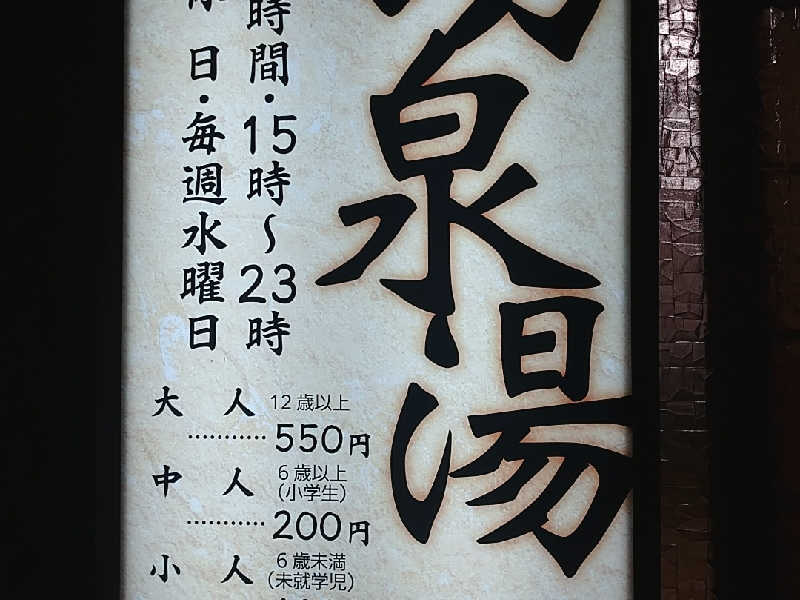 泉湯
時間・15時～23時
日・毎週水曜日
大人 12歳以上
…………550円
中人 6歳以上
(小学生)
…………200円
小人 6歳未満
(未就学児)